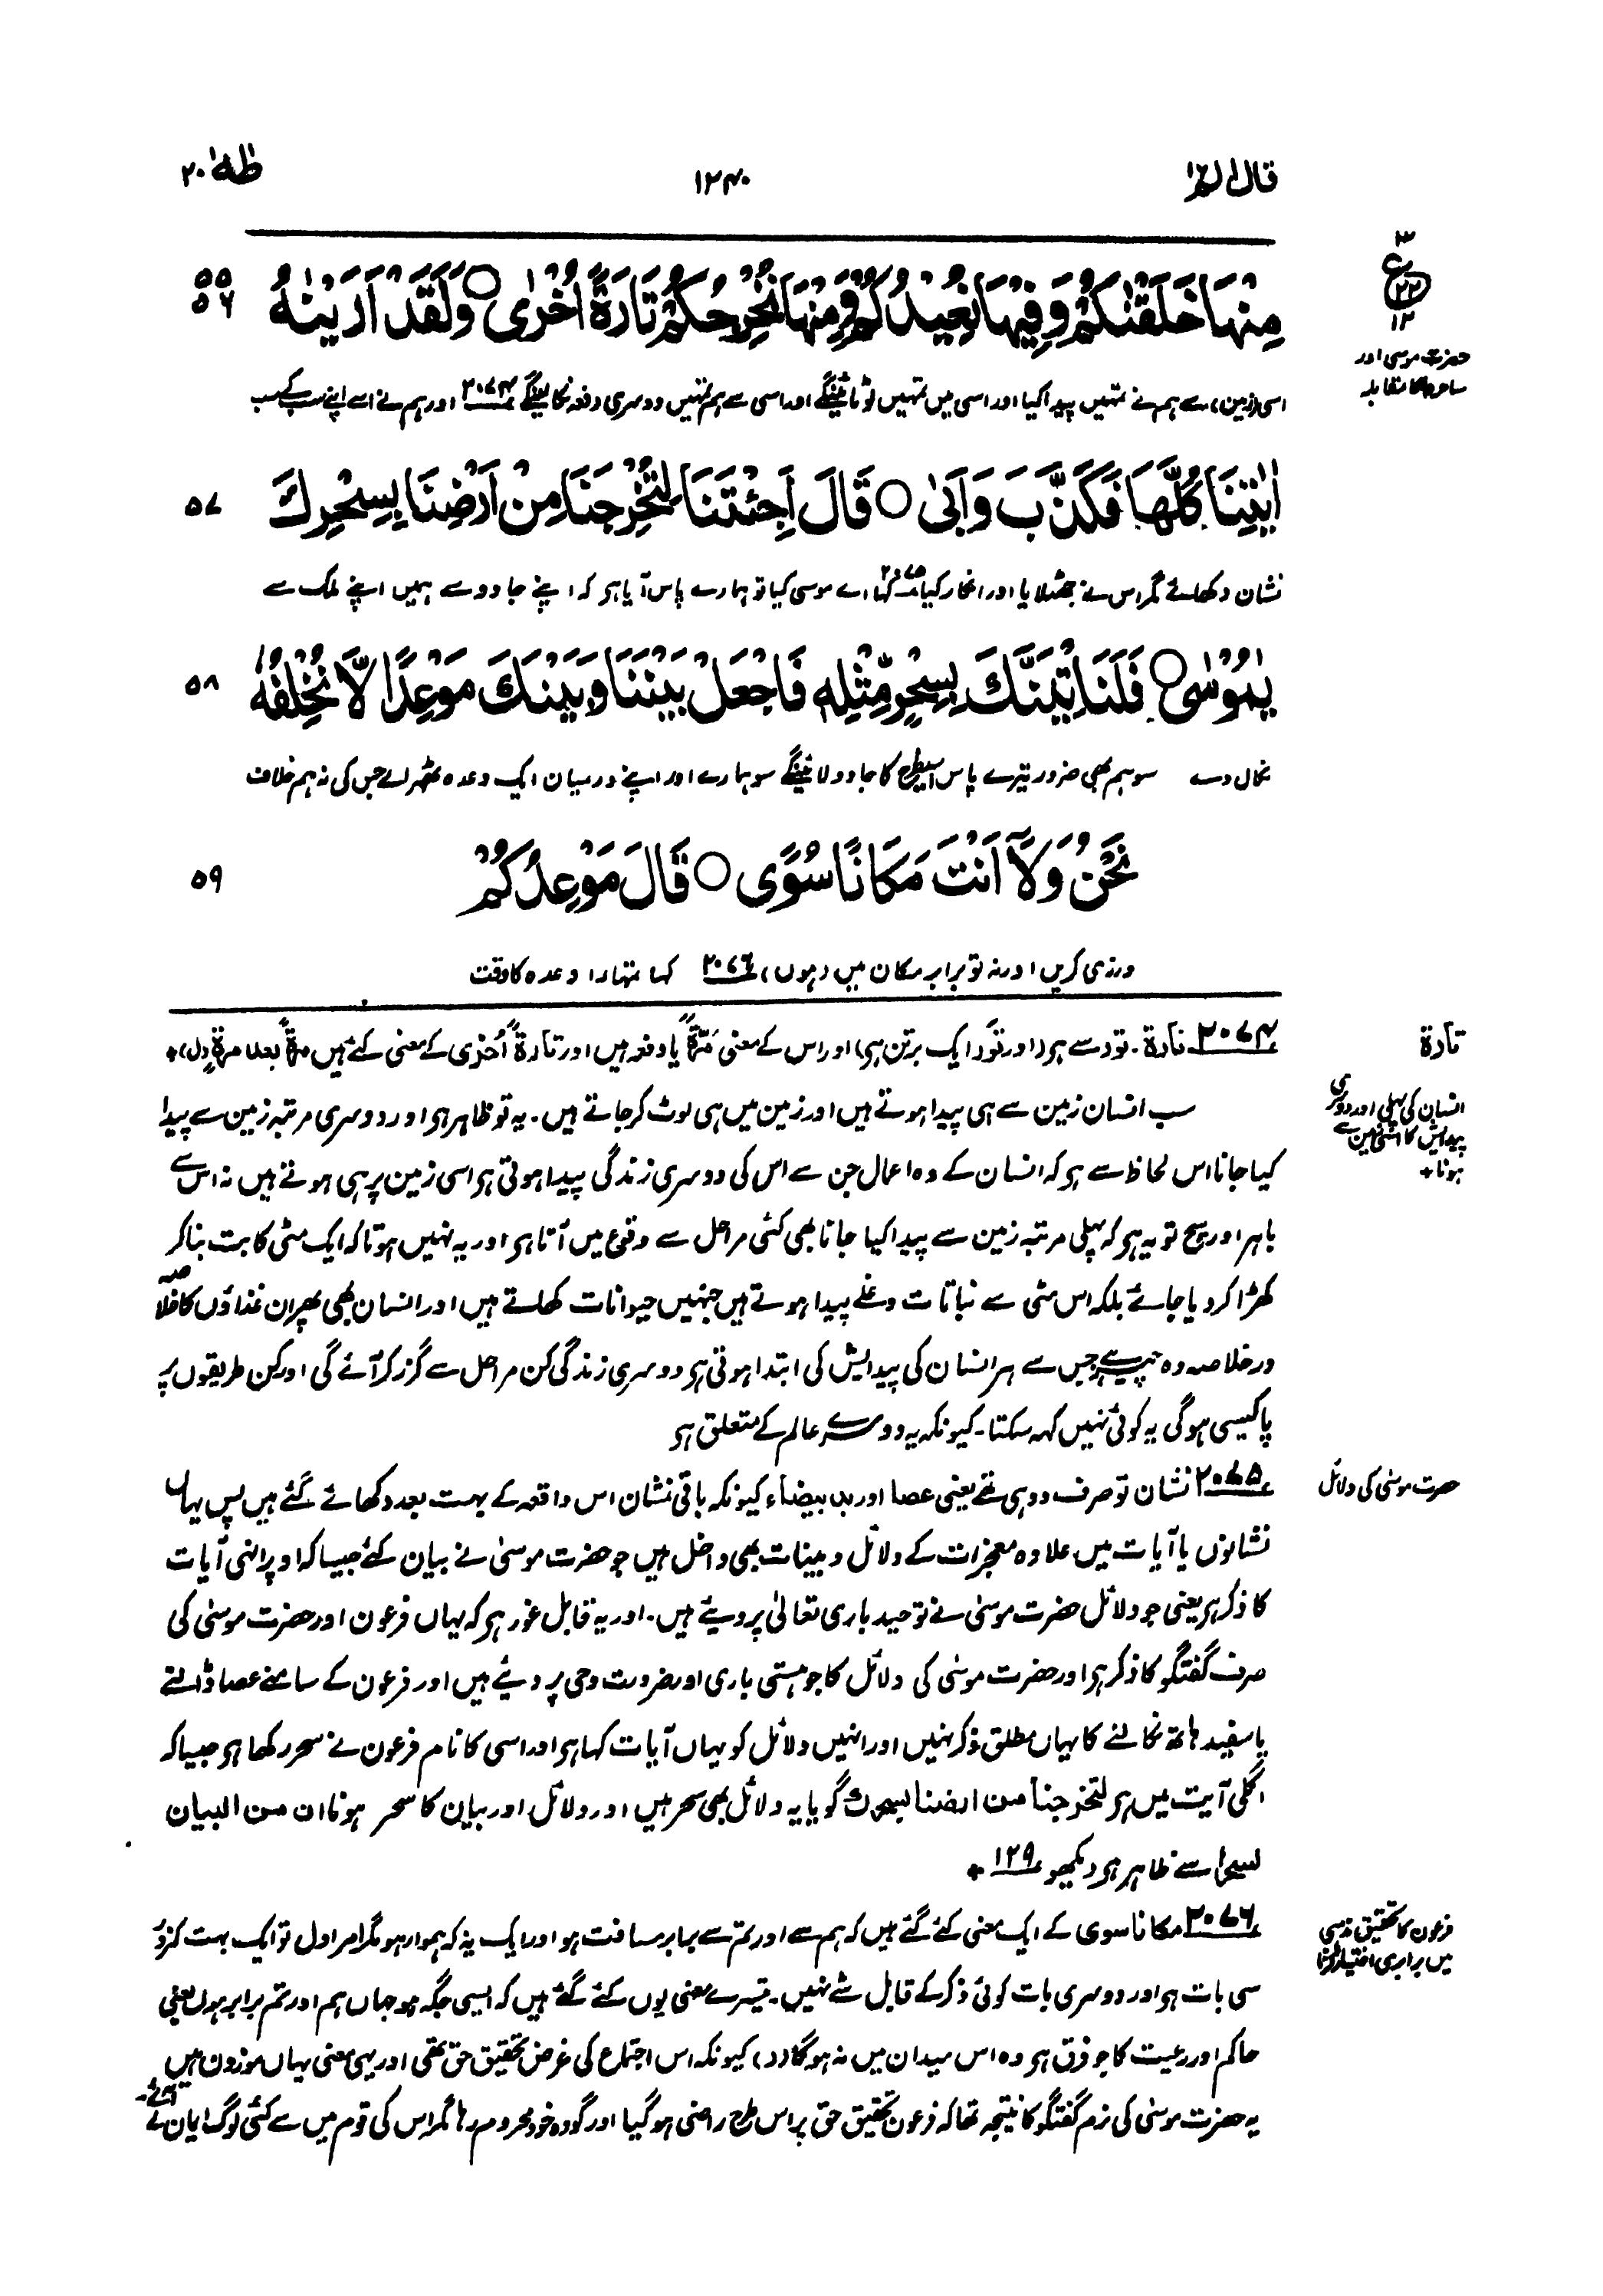 قال الم ۱۲۴۰ طٰهٰ ۲۰
۳
ع
۲۲
۱۲
حضرت موسیٰ اور
ساحروں کا مقابلہ
مِنْهَا خَلَقْنٰكُمْ وَفِيْهَا نُعِيْدُكُمْ وَمِنْهَا نُخْرِجُكُمْ تَارَةً اُخْرٰى ○ وَلَقَدْ اَرَيْنٰهُ ۵۵ ۵۶
اسی (زمین) سے ہم نے تمہیں پیدا کیا اور اسی میں تمہیں لوٹائینگے اور اسی سے ہم تمہیں دوسری دفعہ نکالینگے ۲۰۷۴ اور ہم نے اسے اپنے سب کے سب
اٰيٰتِنَا كُلَّهَا فَكَذَّبَ وَاَبٰى ○ قَالَ اَجِئْتَنَا لِتُخْرِجَنَا مِنْ اَرْضِنَا بِسِحْرِكَ ۵۷
نشان دکھائے مگر اس نے جھٹلایا اور انکار کیا ۲۰۷۵ کہا اے موسیٰ کیا تو ہمارے پاس آیا ہو کہ اپنے جادو سے ہمیں اپنے ملک سے
يٰمُوْسٰى ○ فَلَنَاْتِيَنَّكَ بِسِحْرٍ مِّثْلِهٖ فَاجْعَلْ بَيْنَنَا وَبَيْنَكَ مَوْعِدًا لَّا نُخْلِفُهٗ ۵۸
نکال دے سو ہم بھی ضرور تیرے پاس اسیطرح کا جادو لائینگے سو ہمارے اور اپنے درمیان ایک وعدہ ٹھہرا لے جس کی نہ ہم خلاف
نَحْنُ وَلَآ اَنْتَ مَكَانًا سُوًى ○ قَالَ مَوْعِدُكُمْ ۵۹
ورزی کریں اور نہ تو برابر مکان میں (ہوں) ۲۰۷۶ کہا تمہارا وعدہ کا وقت
تارة
۲۰۷۴ تارة۔ تور سے ہو (اور تَوْر ایک برتن ہو) اور اس کے معنی مَرَّةً یا دفعہ ہیں اور تارةً اُخرٰی کے معنی کئے ہیں مرةً بعد مرةٍ (ل)٭
انسان کی پہلی اور دوسری
پیدایش کا اسی زمین سے
ہونا٭
سب انسان زمین سے ہی پیدا ہوتے ہیں اور زمین میں ہی لوٹ کر جاتے ہیں۔ یہ تو ظاہر ہو اور دوسری مرتبہ زمین سے پیدا
کیا جانا اس لحاظ سے ہو کہ انسان کے وہ اعمال جن سے اس کی دوسری زندگی پیدا ہوتی ہو اسی زمین پر ہی ہوتے ہیں نہ اس سے
باہر اور سچ تو یہ ہو کہ پہلی مرتبہ زمین سے پیدا کیا جانا بھی کئی مراحل سے وقوع میں آتا ہو اور یہ نہیں ہوتا کہ ایک مٹی کا بت بنا کر
کھڑا کر دیا جائے بلکہ اس مٹی سے نباتات و غلے پیدا ہوتے ہیں جنہیں حیوانات کھاتے ہیں اور انسان بھی پھر ان غذاؤں کا خلاصہ
در خلاصہ وہ چیز ہے جس سے ہر انسان کی پیدایش کی ابتدا ہوتی ہو دوسری زندگی کن مراحل سے گزر کر آئے گی اور کن طریقوں پر
یا کیسی ہوگی یہ کوئی نہیں کہہ سکتا۔ کیونکہ یہ دوسرے عالم کے متعلق ہو
حضرت موسیٰ کی دلائل
۲۰۷۵ نشان تو صرف دو ہی تھے یعنی عصا اور ید بیضاء کیونکہ باقی نشان اس واقعہ کے بہت بعد دکھائے گئے ہیں پس یہاں
نشانوں یا آیات میں علاوہ معجزات کے دلائل و بینات بھی داخل ہیں جو حضرت موسیٰ نے بیان کئے جیسا کہ اوپر انہی آیات
کا ذکر ہو یعنی جو دلائل حضرت موسیٰ نے توحید باری تعالیٰ پر دیئے ہیں۔ اور یہ قابل غور ہو کہ یہاں فرعون اور حضرت موسیٰ کی
صرف گفتگو کا ذکر ہو اور حضرت موسیٰ کی دلائل کا جو ہستی باری اور ضرورت وحی پر دیئے ہیں اور فرعون کے سامنے عصا ڈالنے
یا سفید ہاتھ نکالنے کا یہاں مطلق ذکر نہیں اور انہیں دلائل کو یہاں آیات کہا ہو اور اسی کا نام فرعون نے سحر رکھا ہو جیسا کہ
اگلی آیت میں ہو لتخرجنا من ارضنا بسحرك گویا یہ دلائل بھی سحر ہیں اور دلائل اور بیان کا سحر ہونا ان من البیان
لسحرا سے ظاہر ہو دیکھو ۱۲۹ ٭
فرعون کا تحقیق مذہبی
میں برابری اختیار کرنا
۲۰۷۶ مکانا سوی کے ایک معنی کئے گئے ہیں کہ ہم سے اور تم سے برابر مسافت ہو اور ایک یہ کہ ہموار ہو مگر امر اول تو ایک بہت کمزور
سی بات ہو اور دوسری بات کوئی ذکر کے قابل شے نہیں۔ تیسرے معنی یوں کئے گئے ہیں کہ ایسی جگہ ہو جہاں ہم اور تم برابر ہوں یعنی
حاکم اور رعیت کا جو فرق ہو وہ اس میدان میں نہ ہوگا (د) کیونکہ اس اجتماع کی غرض تحقیق حق تھی اور یہی معنی یہاں موزون ہیں
یہ حضرت موسیٰ کی نرم گفتگو کا نتیجہ تھا کہ فرعون تحقیق حق پر اس طرح راضی ہو گیا اور گو وہ خود محروم رہا مگر اس کی قوم میں سے کئی لوگ ایمان لے آئے۔